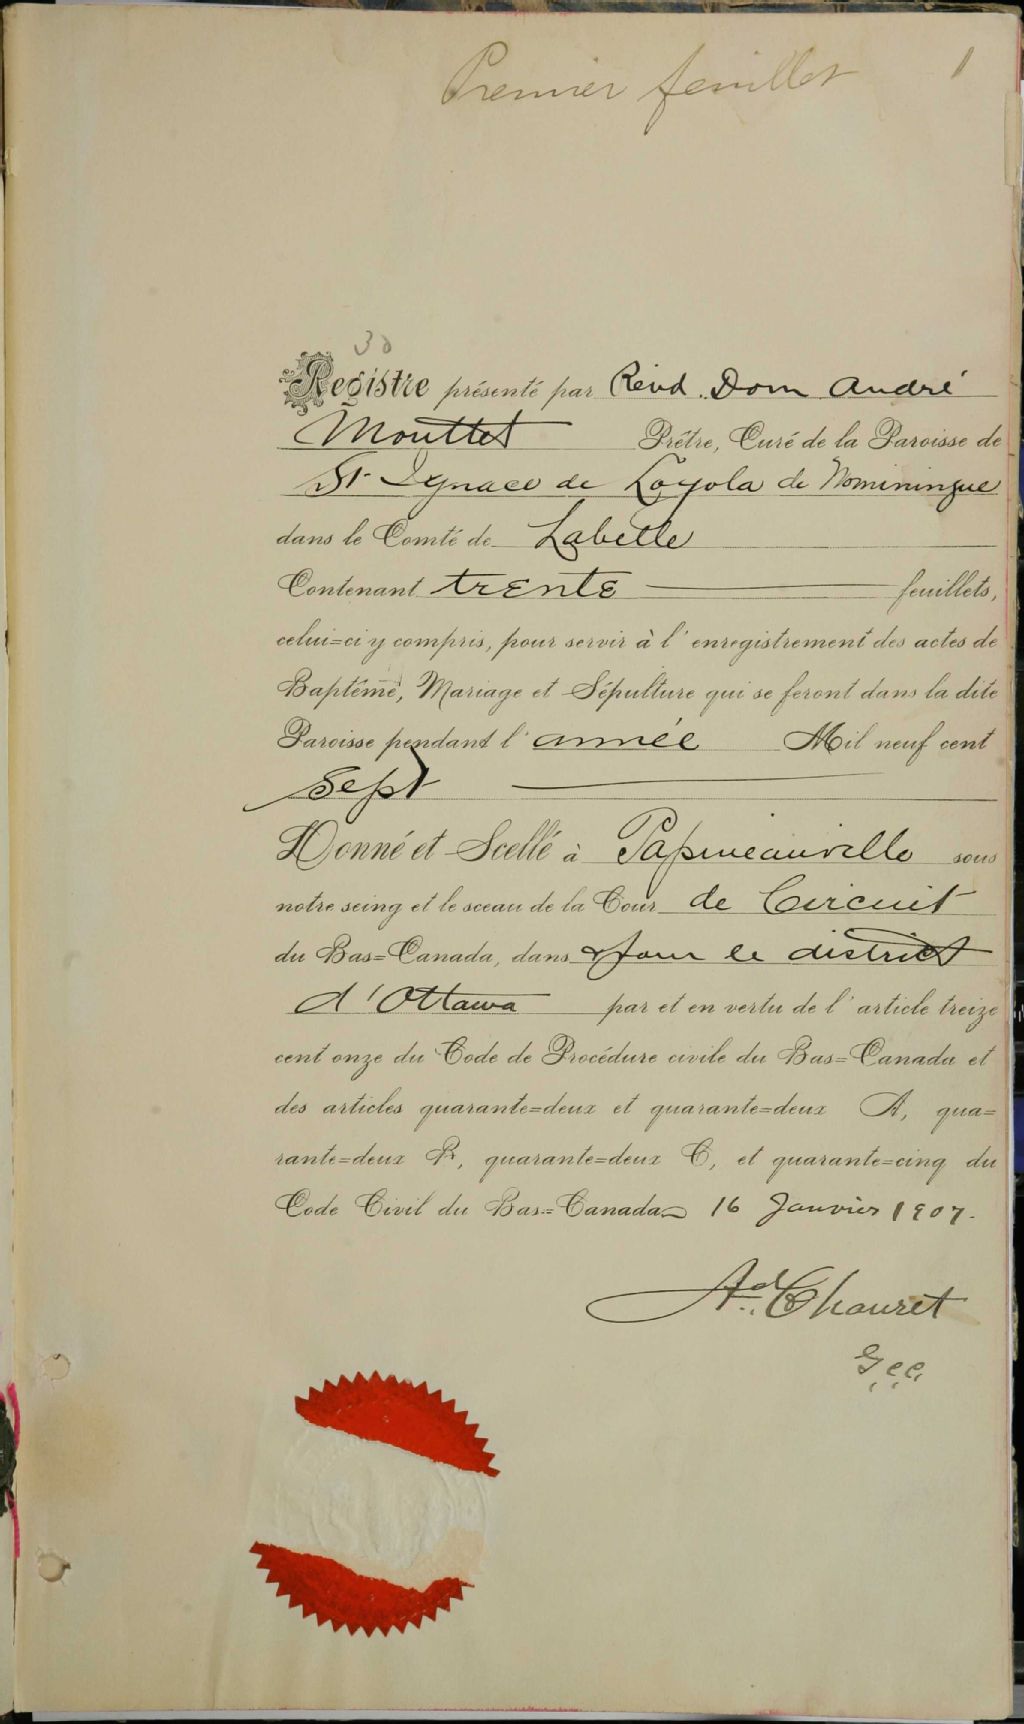 Premier feuillet 1
30
Registre présenté par Révd. Dom André
Mouttet Prêtre, Curé de la Paroisse de
St Ignace de Loyola de Nominingue
dans le Comté de Labelle
Contenant trente feuillets,
celui=ci y compris, pour servir à l'enregistrement des actes de
Baptême, Mariage et Sépulture qui se feront dans la dite
Paroisse pendant l'année Mil neuf cent
sept
Donné et Scellé à Papineauville sous
notre seing et le sceau de la Cour de Circuit
du Bas=Canada, dans & pour le district
d'Ottawa par et en vertu de l'article treize
cent onze du Code de Procédure civile du Bas=Canada et
des articles quarante=deux et quarante=deux A, qua=
rante=deux B, quarante=deux C, et quarante=cinq du
Code Civil du Bas=Canada 16 Janvier 1907.
Ad. Chauret
G.C.C.